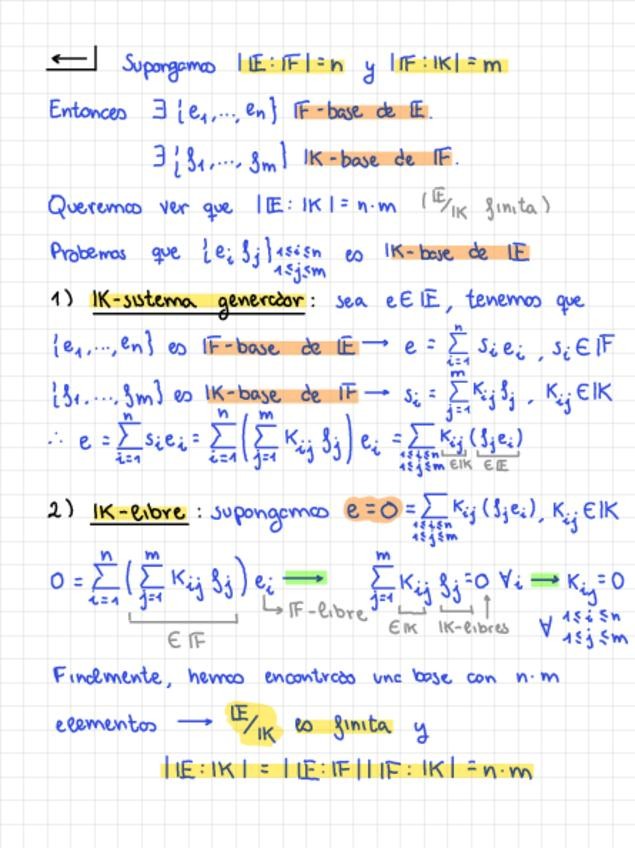 ← Supongamos |𝔼:𝔽|=n y |𝔽:𝕂|=m
Entonces ∃ {e₁,...,eₙ} 𝔽-base de 𝔼.
∃ {f₁,...,fₘ} 𝕂-base de 𝔽.
Queremos ver que |𝔼:𝕂|=n·m (𝔼/𝕂 finita)
Probemos que {eᵢ fⱼ} 1≤i≤n 1≤j≤m es 𝕂-base de 𝔼
1) 𝕂-sistema generador: sea e∈𝔼, tenemos que
{e₁,...,eₙ} es 𝔽-base de 𝔼 → e = ∑ᵢ₌₁ⁿ sᵢeᵢ, sᵢ∈𝔽
{f₁,...,fₘ} es 𝕂-base de 𝔽 → sᵢ = ∑ⱼ₌₁ᵐ Kᵢⱼfⱼ, Kᵢⱼ∈𝕂
∴ e = ∑ᵢ₌₁ⁿ sᵢeᵢ = ∑ᵢ₌₁ⁿ (∑ⱼ₌₁ᵐ Kᵢⱼ fⱼ) eᵢ = ∑ 1≤i≤n 1≤j≤m Kᵢⱼ (fⱼeᵢ)
∈𝕂 ∈𝔼
2) 𝕂-libre: supongamos e=0=∑ 1≤i≤n 1≤j≤m Kᵢⱼ (fⱼeᵢ), Kᵢⱼ∈𝕂
0 = ∑ᵢ₌₁ⁿ (∑ⱼ₌₁ᵐ Kᵢⱼ fⱼ) eᵢ → ∑ⱼ₌₁ᵐ Kᵢⱼ fⱼ=0 ∀i → Kᵢⱼ=0
∈𝔽 𝔽-libre ∈𝕂 𝕂-libres ∀ 1≤i≤n 1≤j≤m
Finalmente, hemos encontrado una base con n·m
elementos → 𝔼/𝕂 es finita y
|𝔼:𝕂| = |𝔼:𝔽||𝔽:𝕂| = n·m